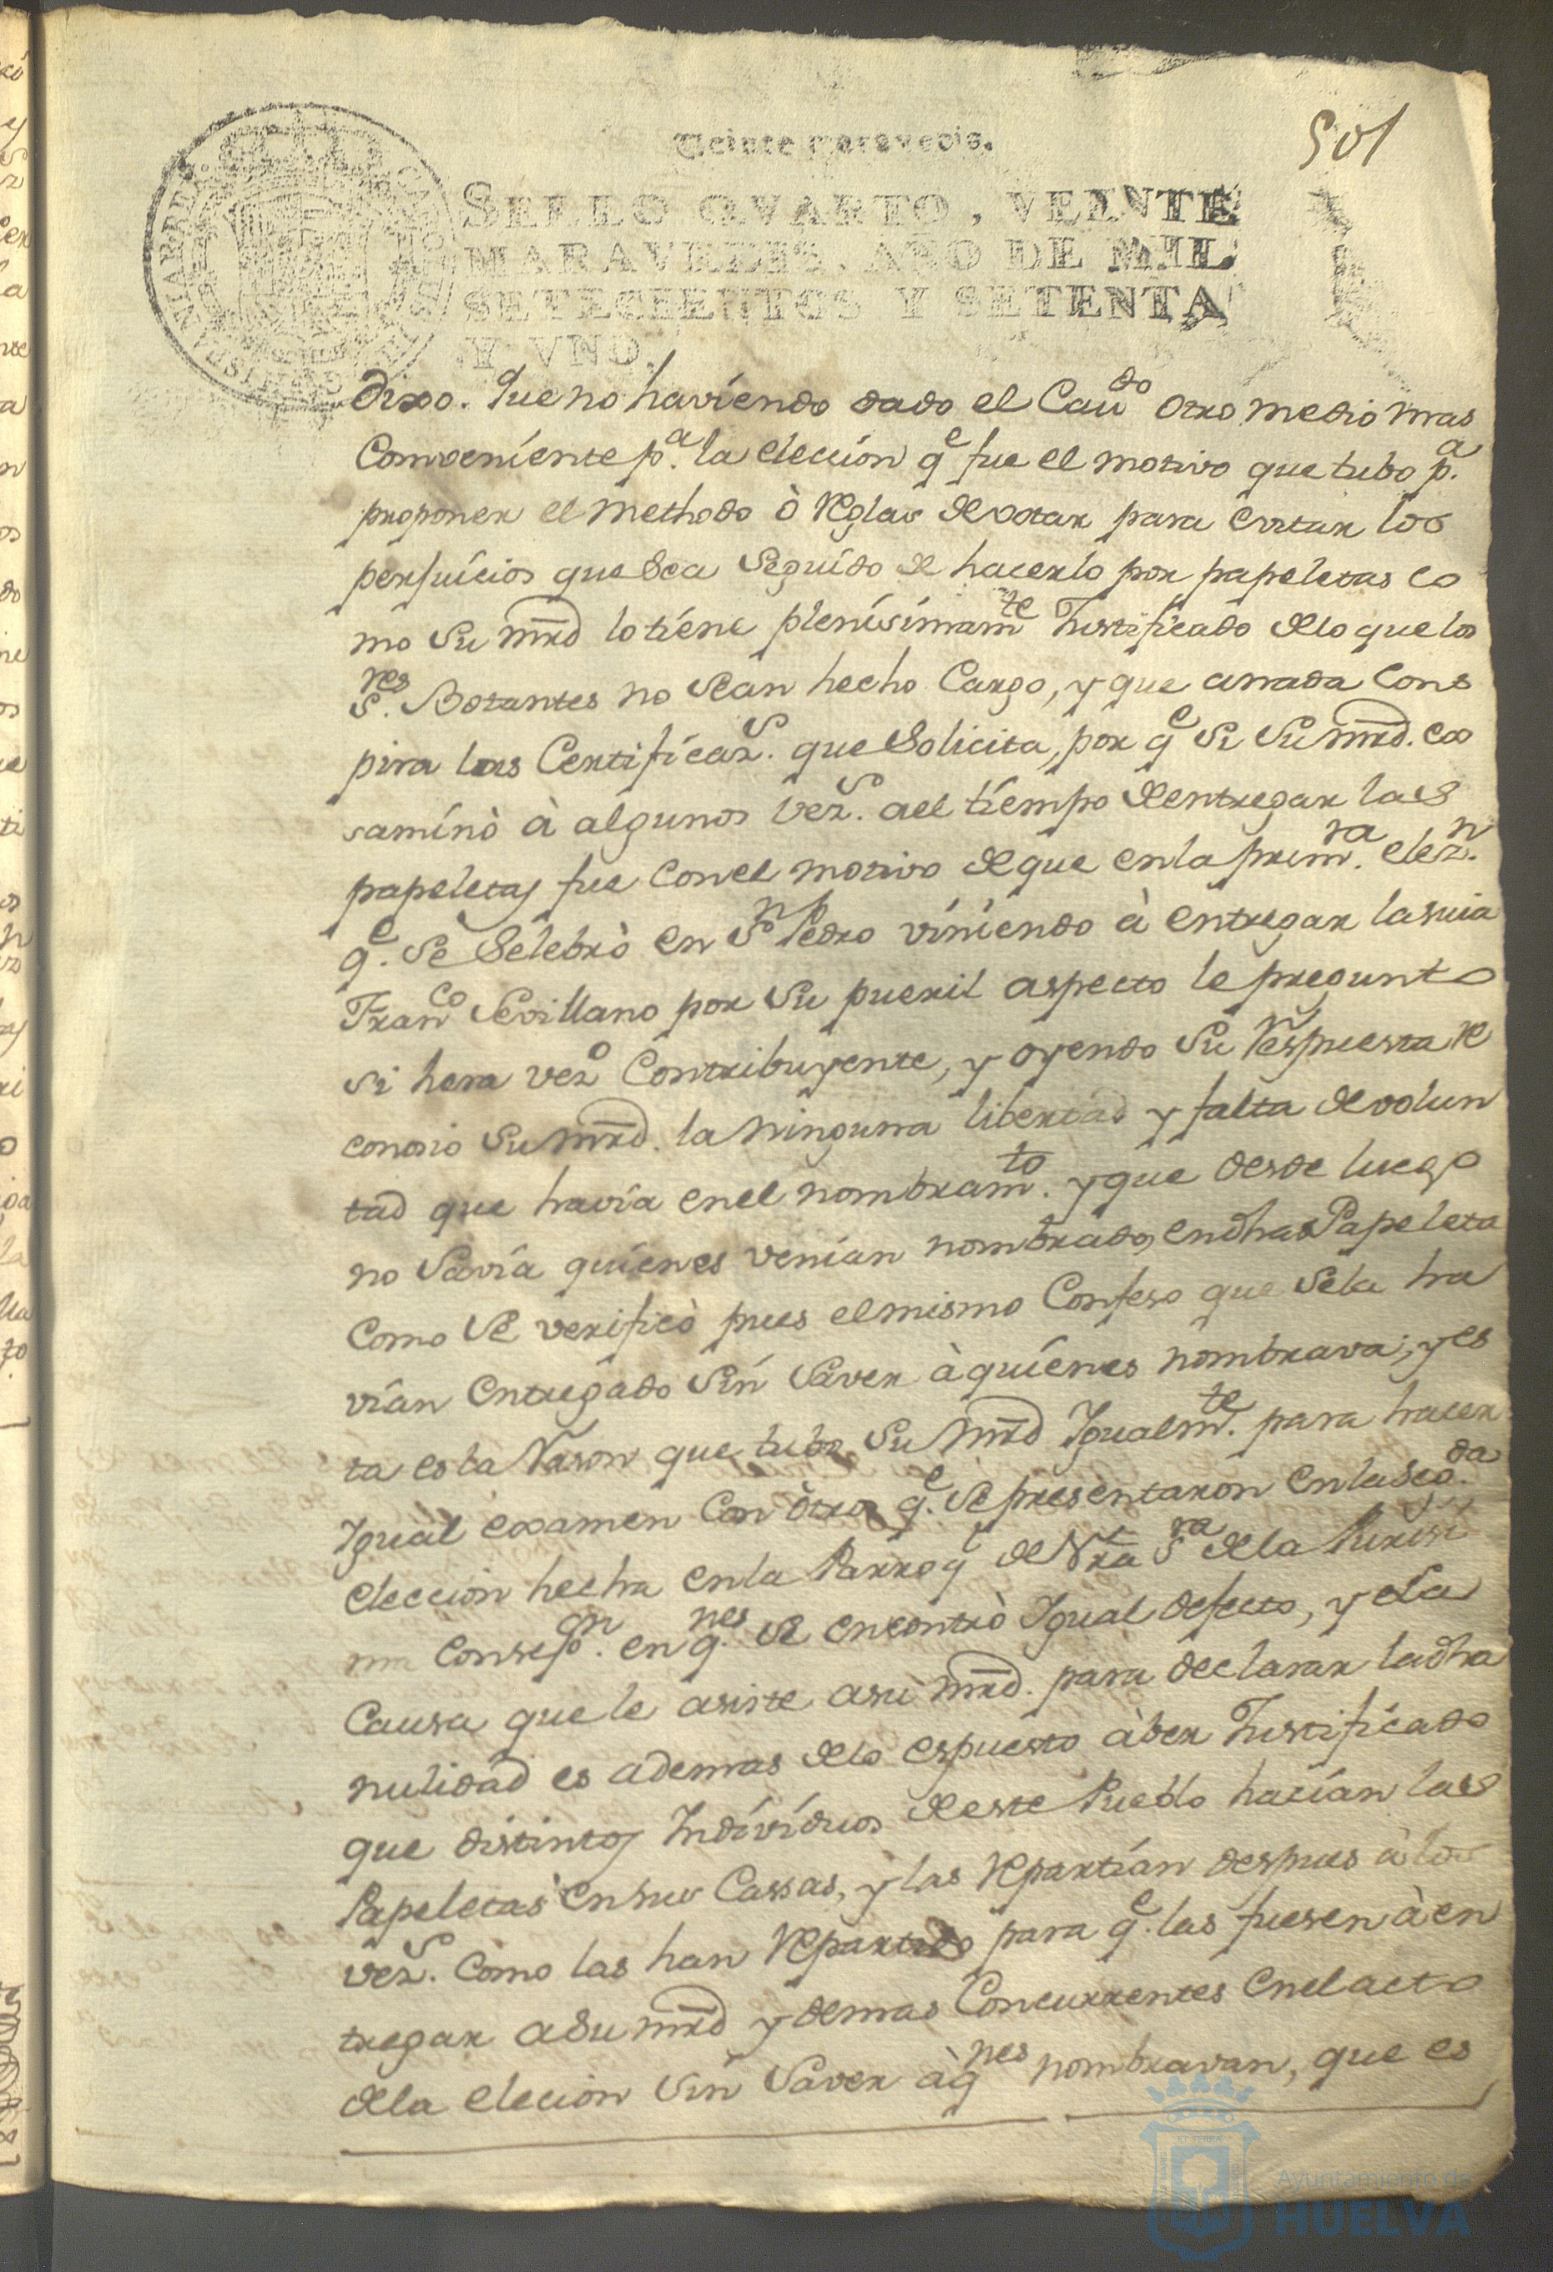 501
Veinte maravedis.
SELLO QVARTO, VEINTE
MARAVEDIS, AÑO DE MIL
SETECIENTOS Y SETENTA
Y VNO.
dixo. Que no haviendo dado el Cau.do otro medio mas
Conveniente p.a la elección q.e fue el motivo que tubo p.a
proponer el methodo ò Reglas de votar para evitar los
perjuicios que Sea Seguido de hacerlo por papeletas co
mo Su mrd lo tiene plenisimam.te Justificado de lo que los
S.res Botantes no Sean hecho Cargo, y que anada Cons
pira las Certificaz.s que Solicita, por q.e Si Su mrd. ex
saminò à algunos vez.s ael tiempo de entregar las
papeletas fue con el motivo de que en la prim.ra elez.n
q.e Se Selebrò en S.n Pedro viniendo à entregar la suia
Fran.co Sevillano por Su pueril aspecto le pregunto
Si hera vez.o Contribuyente, y oyendo Su Respuesta Re
conosio Su mrd. la ninguna libertad y falta de volun
tad que havia en el nombram.to y que desde luego
no Savia quienes venian nombrados en dhas Papeleta
Como Se verificò pues el mismo Confeso que Sela ha
vian Entregado Sin Saver à quienes nombrava; y es
ta es la Rason que tubo Su mrd Igualm.te para hacer
Igual examen Con òtros q.e Se presentaron en la Seg.da
eleccion hecha en la Parroq.l de Ntra S.ra de la Purisi
ma Consep.on en q.nes Se encontrò Igual defecto, y ela
Causa que le asiste asu mrd. para declarar la dha
nulidad es ademas delo espuesto àber Justificado
que distintos Individuos de este Pueblo hacian las
Papeletas en Sus Cassas, y las Repartian despues à los
vez.s Como las han Repartido para q.e las fuesen à en
tregar a Su mrd y demas Concurrentes en el acto
dela elecion Sin Saver à q.nes nombravan, que es
Ayuntamiento de
HUELVA